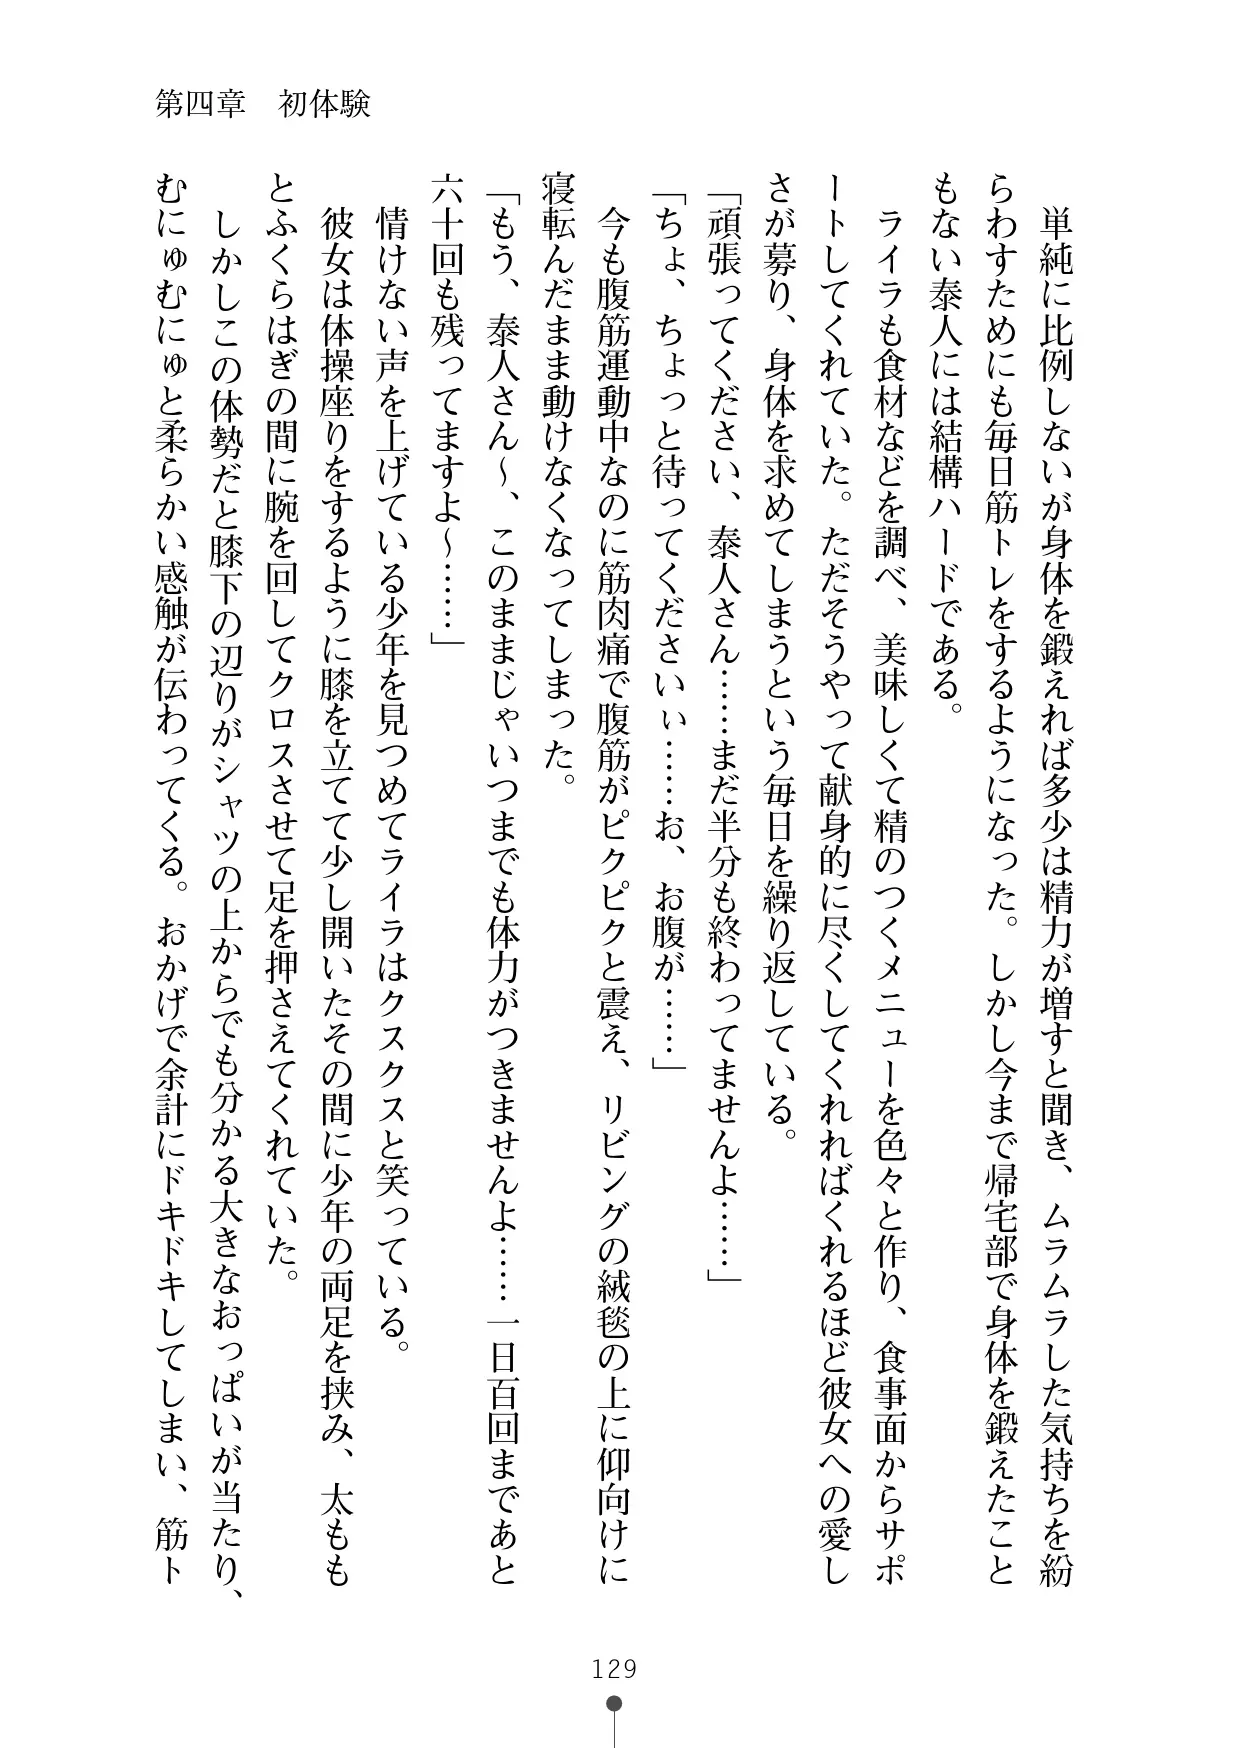 第四章　初体験
単純に比例しないが身体を鍛えれば多少は精力が増すと聞き、ムラムラした気持ちを紛
らわすためにも毎日筋トレをするようになった。しかし今まで帰宅部で身体を鍛えたこと
もない泰人には結構ハードである。
ライラも食材などを調べ、美味しくて精のつくメニューを色々と作り、食事面からサポ
ートしてくれていた。ただそうやって献身的に尽くしてくれればくれるほど彼女への愛し
さが募り、身体を求めてしまうという毎日を繰り返している。
「頑張ってください、泰人さん……まだ半分も終わってませんよ……」
「ちょ、ちょっと待ってくださいぃ……お、お腹が……」
今も腹筋運動中なのに筋肉痛で腹筋がピクピクと震え、リビングの絨毯の上に仰向けに
寝転んだまま動けなくなってしまった。
「もう、泰人さん～、このままじゃいつまでも体力がつきませんよ……一日百回まであと
六十回も残ってますよ～……」
情けない声を上げている少年を見つめてライラはクスクスと笑っている。
彼女は体操座りをするように膝を立てて少し開いたその間に少年の両足を挟み、太もも
とふくらはぎの間に腕を回してクロスさせて足を押さえてくれていた。
しかしこの体勢だと膝下の辺りがシャツの上からでも分かる大きなおっぱいが当たり、
むにゅむにゅと柔らかい感触が伝わってくる。おかげで余計にドキドキしてしまい、筋ト
129